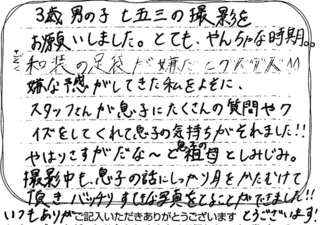 3歳男の子七五三の撮影を
お願いしました。とても、やんちゃな時期。。
さっそく
和装の足袋が嫌だとグズグズ
嫌な予感がしてきた私をよそに、
スタッフさんが息子にたくさんの質問やク
イズをしてくれて息子の気持ちがそれました!!
やはりさすがだな〜と息子の祖母としみじみ。
撮影中も、息子の話にしっかり耳をかたむけて
頂き バッチリ すてきな写真をとることができました!!
いつもありが ご記入いただきありがとうございます とうございます!